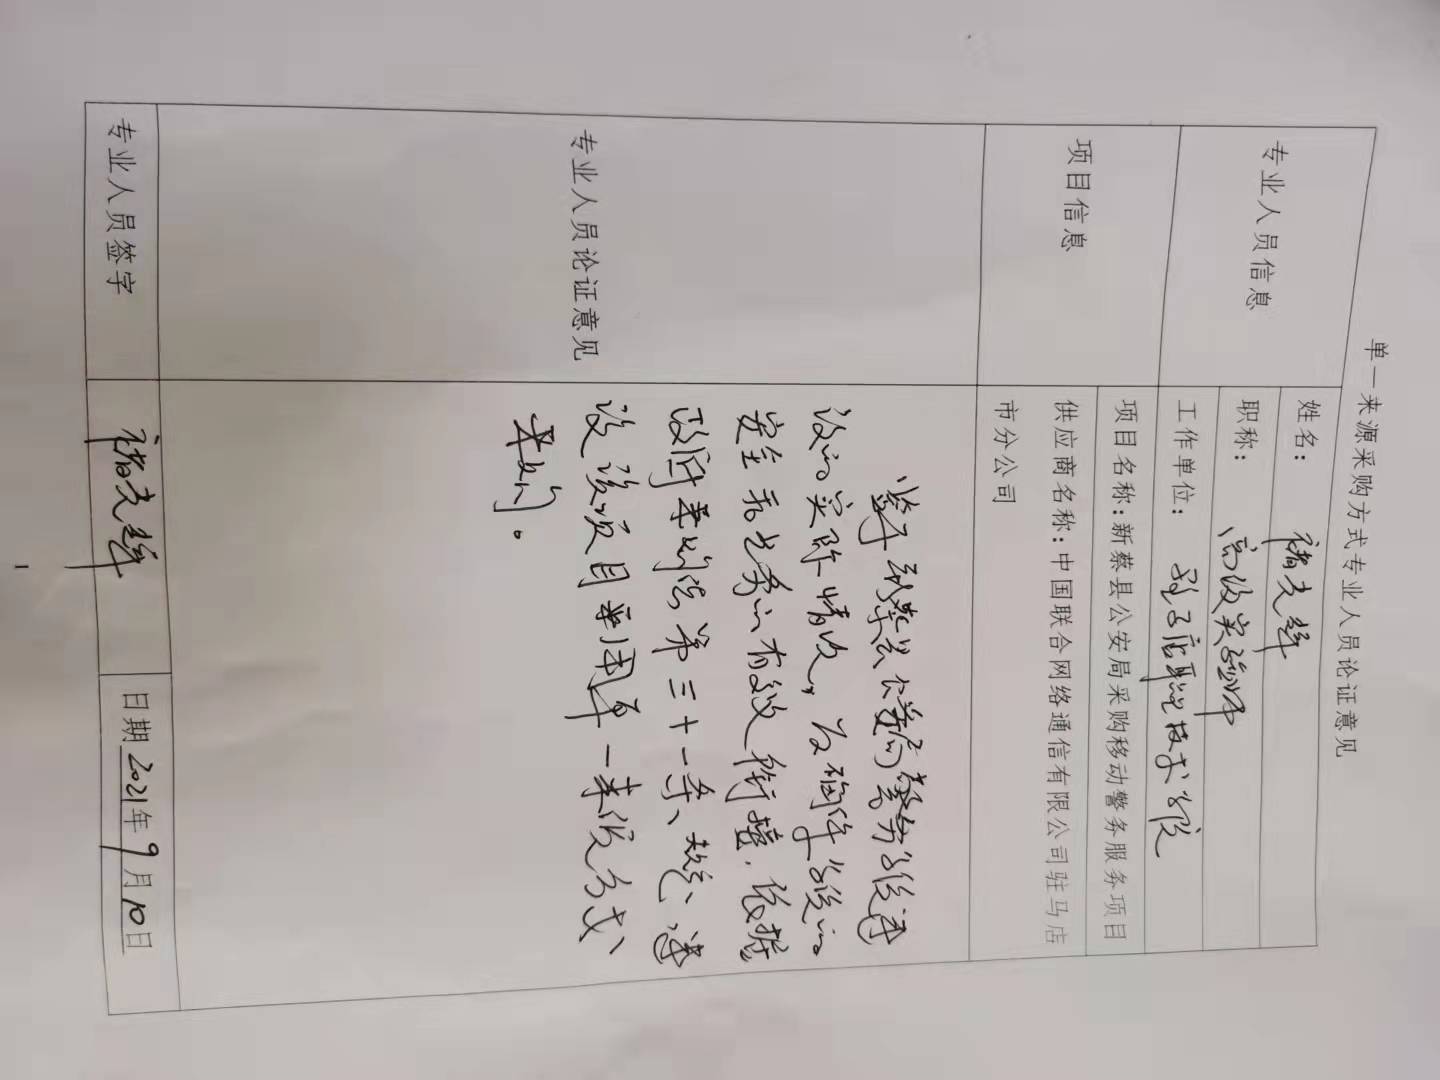 单一来源采购方式专业人员论证意见
专业人员信息
姓名：
职称：高级实验师
工作单位：职业技术学院
项目信息
项目名称：新蔡县公安局采购移动警务服务项目
供应商名称：中国联合网络通信有限公司驻马店
市分公司
专业人员论证意见
鉴于新蔡县公安局警务
设的实际情况，为确保的
安全和业务的有效衔接，依据
政府采购法第三十一条、建
议该项目采用单一来源方式、
采购。
专业人员签字
日期2021年9月10日
1